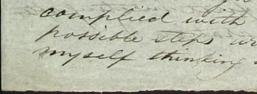 complied with
possible steps
myself thinking